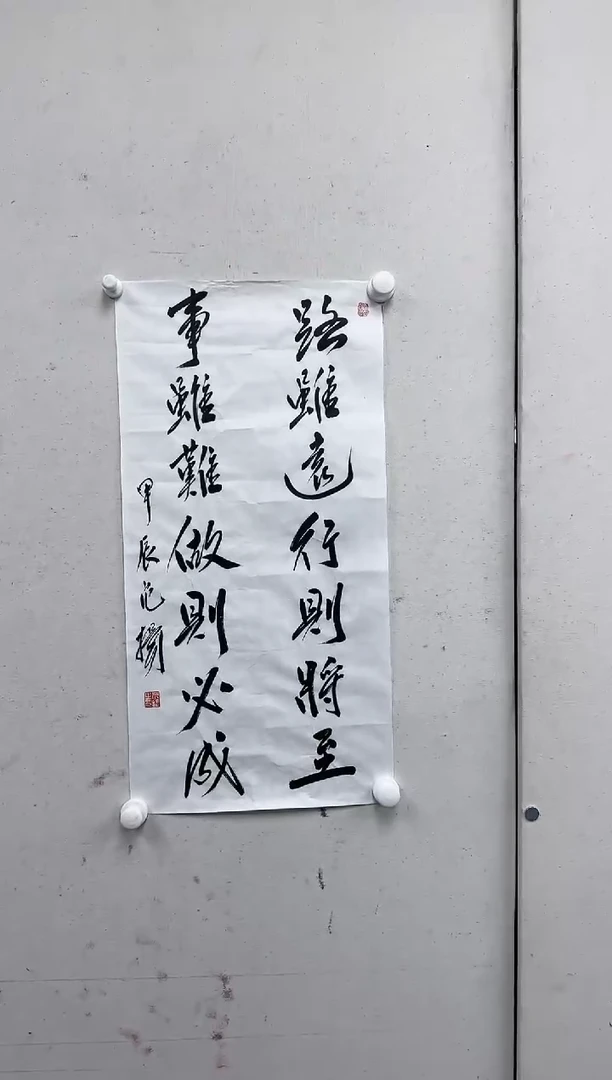 路雖遠行則將至
事雖難做則必成
甲辰范揚